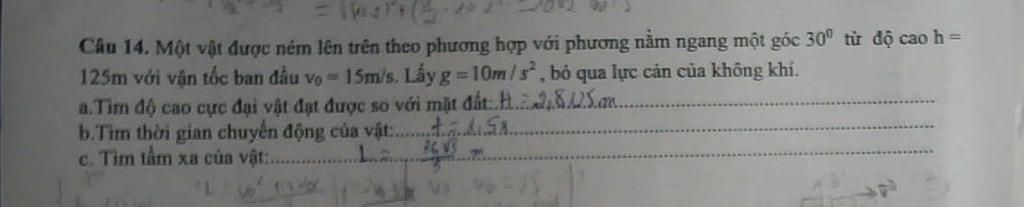 Câu 14. Một vật được ném lên trên theo phương hợp với phương nằm ngang một góc 30⁰ từ độ cao h =
125m với vận tốc ban đầu v₀ = 15m/s. Lấy g = 10m / s², bỏ qua lực cản của không khí.
a.Tìm độ cao cực đại vật đạt được so với mặt đất: H = 2,8125m
b.Tìm thời gian chuyển động của vật: t = 1,5s
c. Tìm tầm xa của vật: L = m